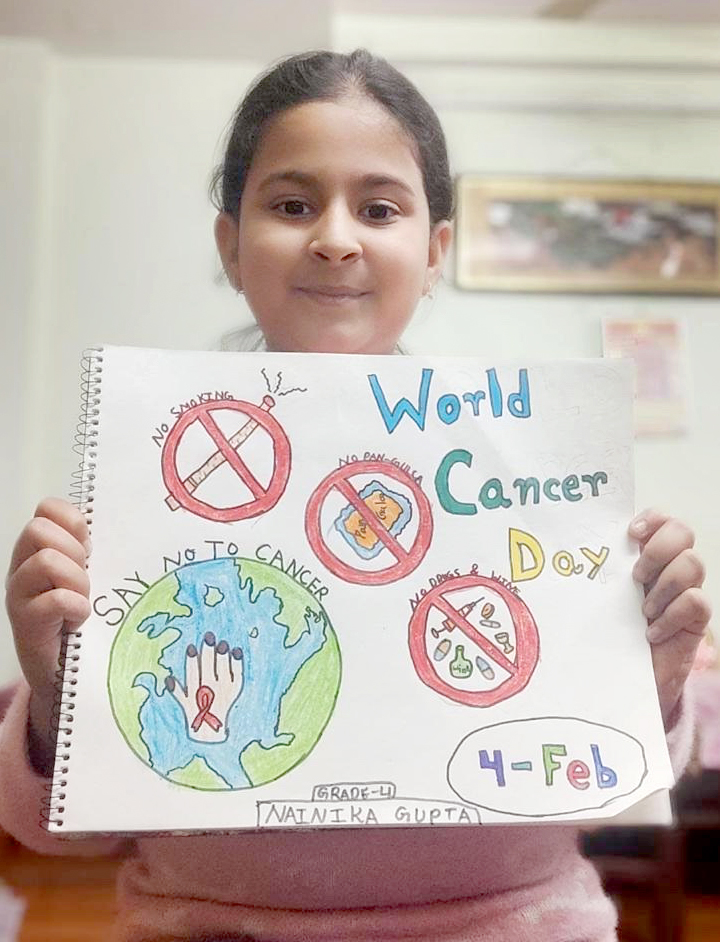 NO SMOKING
World
Cancer
Day
NO PAN-GULSA
Pan
Gulsa
NO DRUGS & WINE
Wine
SAY NO TO CANCER
4-Feb
GRADE-4
NAINIKA GUPTA